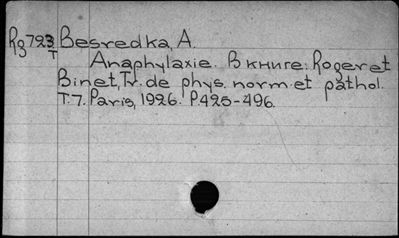 Rg723 Besredka, A.
T
Anaphylaxie. В книге: Roger et
Binet, Tr. de phys. norm. et pathol.
T. 7. Paris, 1926. P. 425-496.